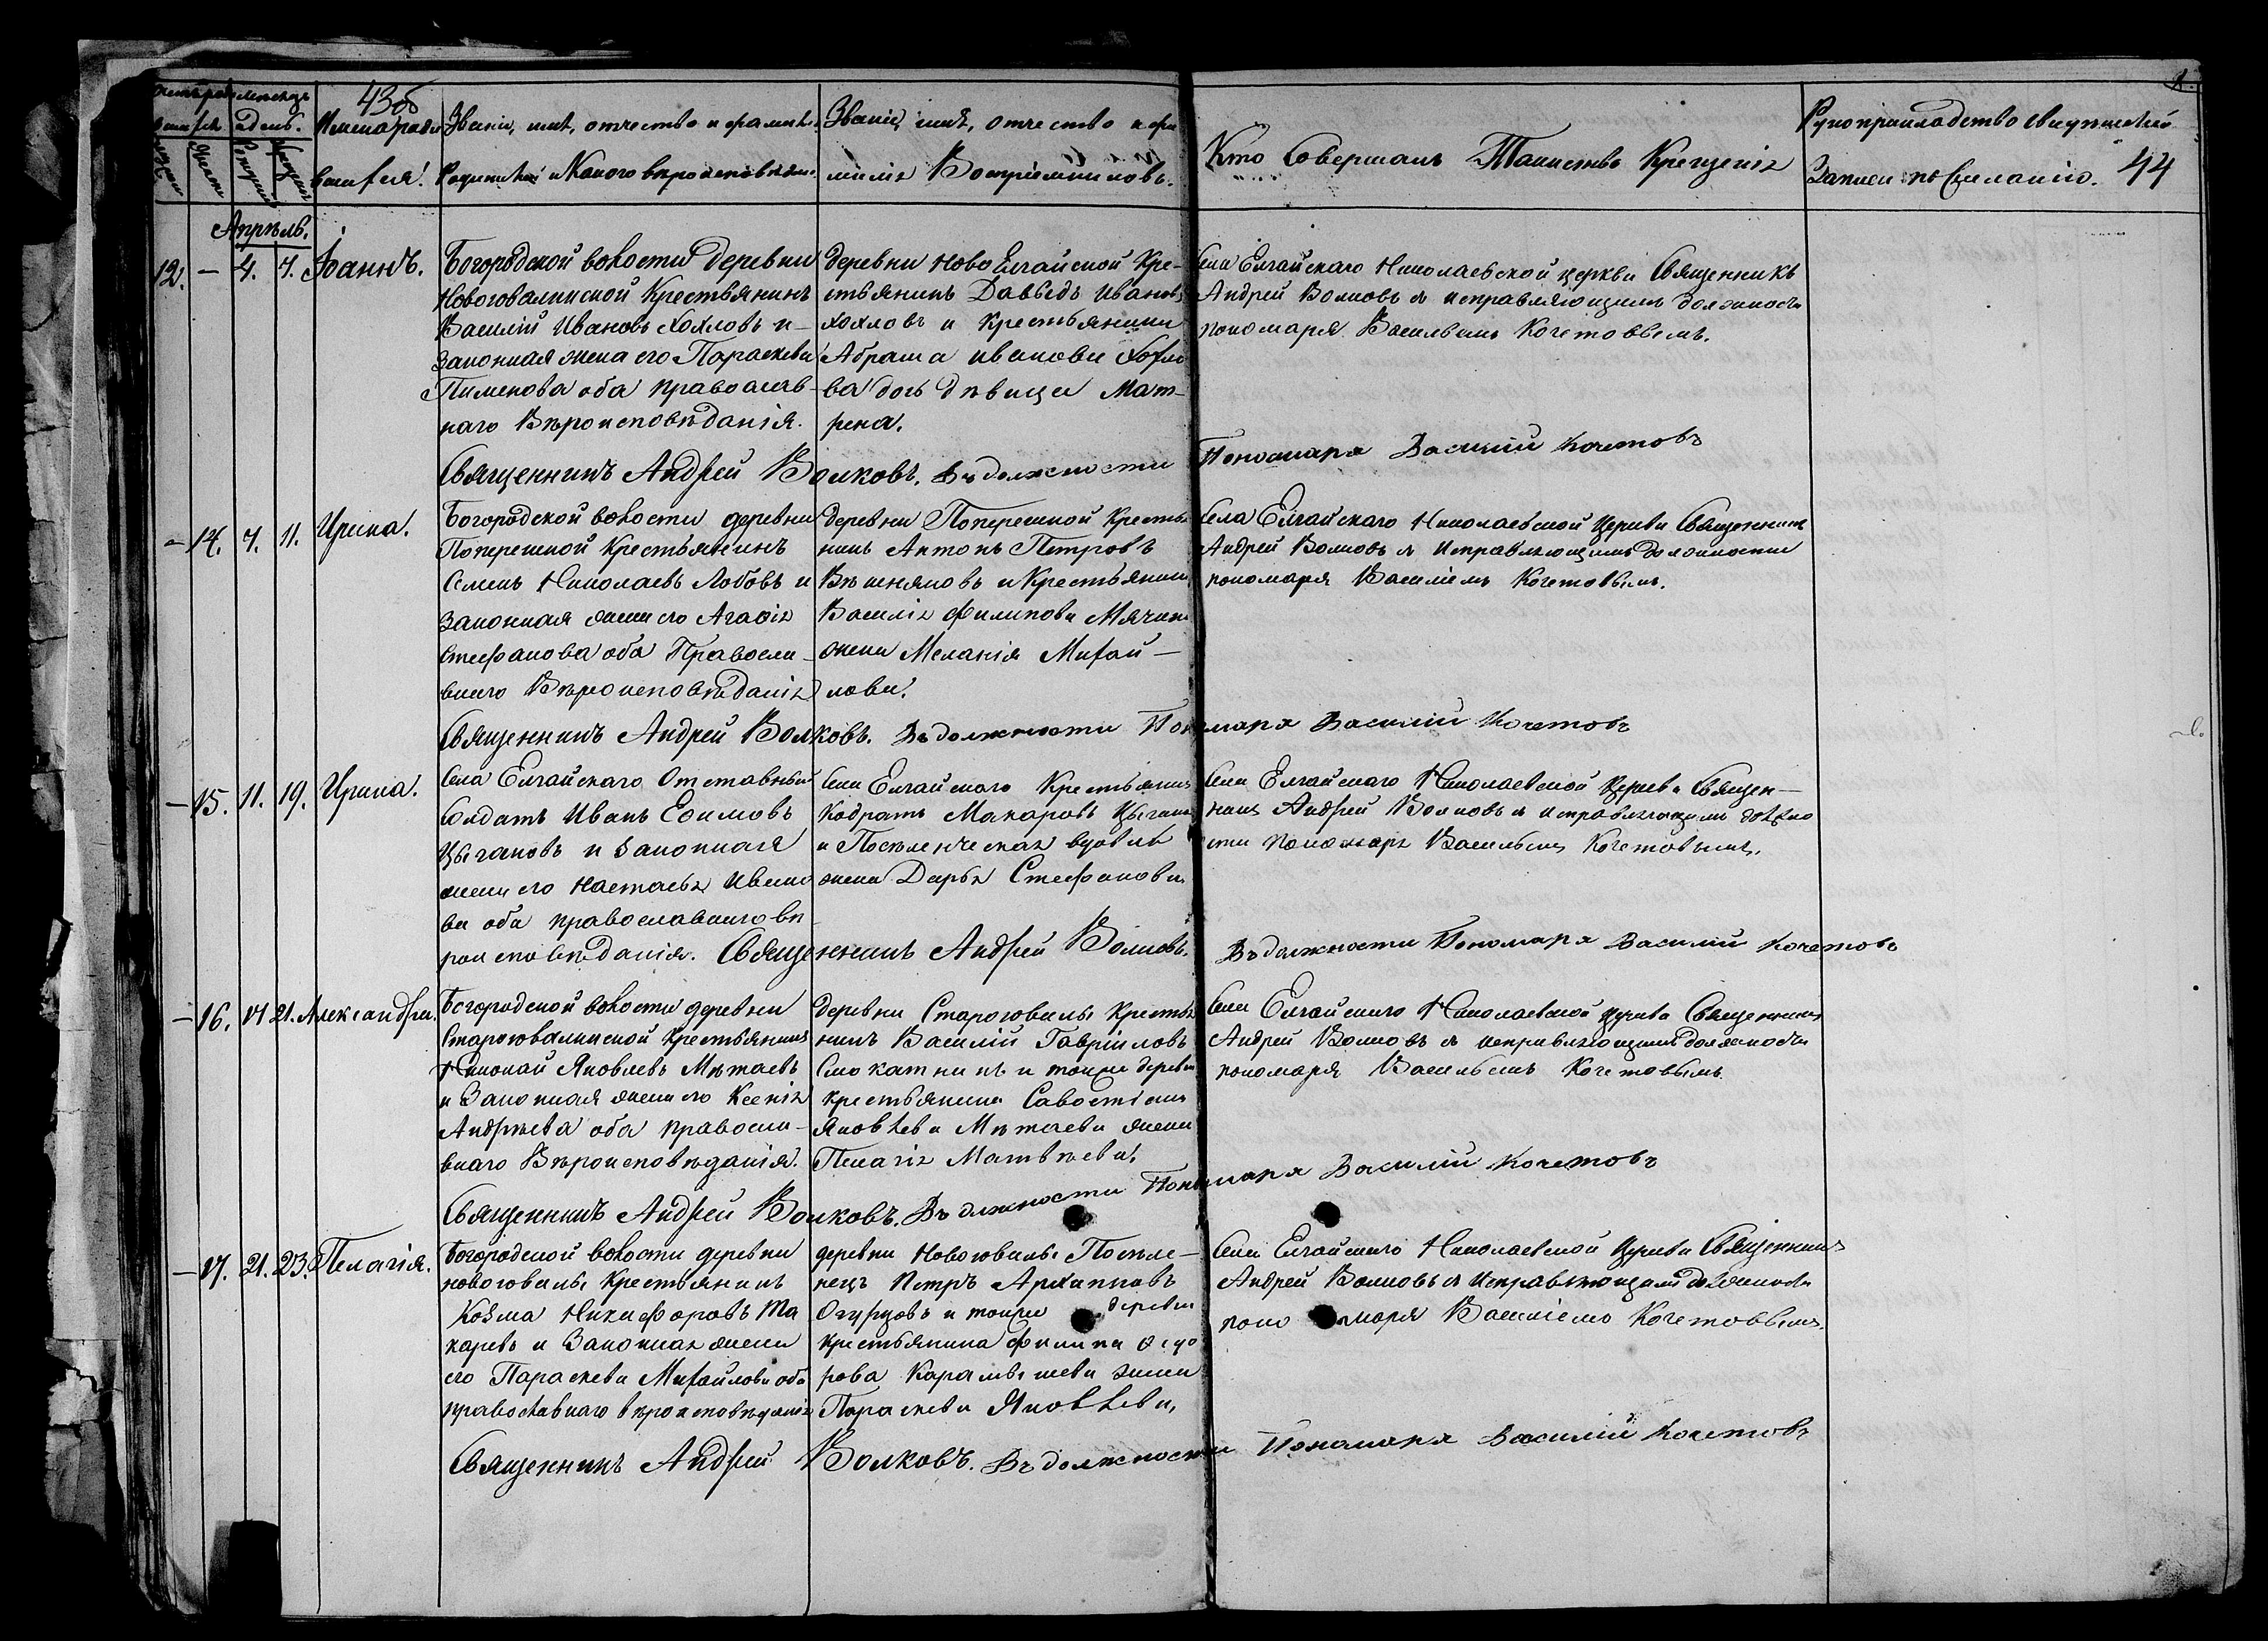 43об
Счетъ родившихся
Месяцъ и день.
Имена родившихся.
Званіе, имя, отчество и фамилія
Родителей и Какого вероисповеданія.
Званіе, имя, отчество и фамилія Воспріемниковъ.
Кто Совершалъ Таинство Крещенія
Рукоприкладство свидетелей
Записи по Желанію. 44
Апрѣль.
12. — 4. 7. Іоаннъ.
Богородской волости деревни
Новоговалинской Крестьянинъ
Василій Ивановъ Хохловъ и
законная жена его Параскева
Пименова оба православ-
наго Вѣроисповѣданія.
деревни Ново Елгайской Кре-
стьянинъ Давыдъ Ивановъ
Хохловъ и крестьянина
Абрама иванова Хохло
ва дочь дѣвица Мат-
рена.
Села Елгайскаго Николаевской церкви Священникъ
Андрей Волковъ съ исправляющимъ должность
пономаря Васильемъ Кочетовымъ.
Священникъ Андрей Волковъ. Въ должности Пономаря Василій Кочетовъ
— 14. 7. 11. Ирина.
Богородской волости деревни
Поперешной Крестьянинъ
Семенъ Николаевъ Лобовъ и
законная жена его Агафія
Стефанова оба Правосла-
внаго Вѣроисповѣданія
деревни Поперешной Крестья
нинъ Антонъ Петровъ
Вешняковъ и Крестьянина
Василія Филипова Мячина
жена Меланія Михай-
лова.
Села Елгайскаго Николаевской Церкви Священникъ
Андрей Волковъ съ Исправляющимъ должность
пономаря Василіемъ Кочетовымъ.
Священникъ Андрей Волковъ. Въ должности Пономаря Василій Кочетовъ
— 15. 11. 19. Ирина.
Села Елгайскаго Отставный
Солдатъ Иванъ Ефимовъ
Цыгановъ и законная
жена его Настасья Ивано
ва оба православнаго вѣ-
роисповѣданія.
Села Елгайскаго Крестьянинъ
Кодратъ Макаровъ Цыгановъ
и Поселенческая вдова
жена Дарья Стефанова
Села Елгайскаго Николаевской Церкви Священ-
никъ Андрей Волковъ съ исправляющимъ должно
сти пономаря Васильемъ Кочетовымъ.
Священникъ Андрей Волковъ. Въ должности Пономаря Василій Кочетовъ
— 16. 17 21. Александра.
Богородской волости деревни
Староговалинской Крестьянинъ
Николай Яковлевъ Мѣтаевъ
и Законная жена его Ксенія
Андрѣева оба правосла-
внаго Вѣроисповѣданія.
деревни Староговалы Крестья
нинъ Василій Гавріиловъ
Смокатнинъ и тойже деревни
крестьянина Савостіана
Яковлева Мѣтаева жена
Пелагія Матвѣева.
Села Елгайскаго Николаевской церкви Священникъ
Андрей Волковъ съ исправляющимъ должность
пономаря Васильемъ Кочетовымъ
Священникъ Андрей Волковъ. Въ должности Пономаря Василій Кочетовъ
— 17. 21. 23. Пелагія.
Богородской волости деревни
новоговалы Крестьянинъ
Козма Никифоровъ То
каревъ и Законная жена
его Параскева Михайлова оба
православнаго вѣроисповѣданія
деревни Новоговалы Поселе-
нецъ Петръ Архиповъ
Огурцовъ и тойже деревни
крестьянина Филипа Федо
рова Карамышева жена
Параскева Яковлева,
Села Елгайскаго Николаевской Церкви Священникъ
Андрей Волковъ съ Исправляющимъ должность
пономаря Василіемъ Кочетовымъ.
Священникъ Андрей Волковъ. Въ должности Пономаря Василій Кочетовъ